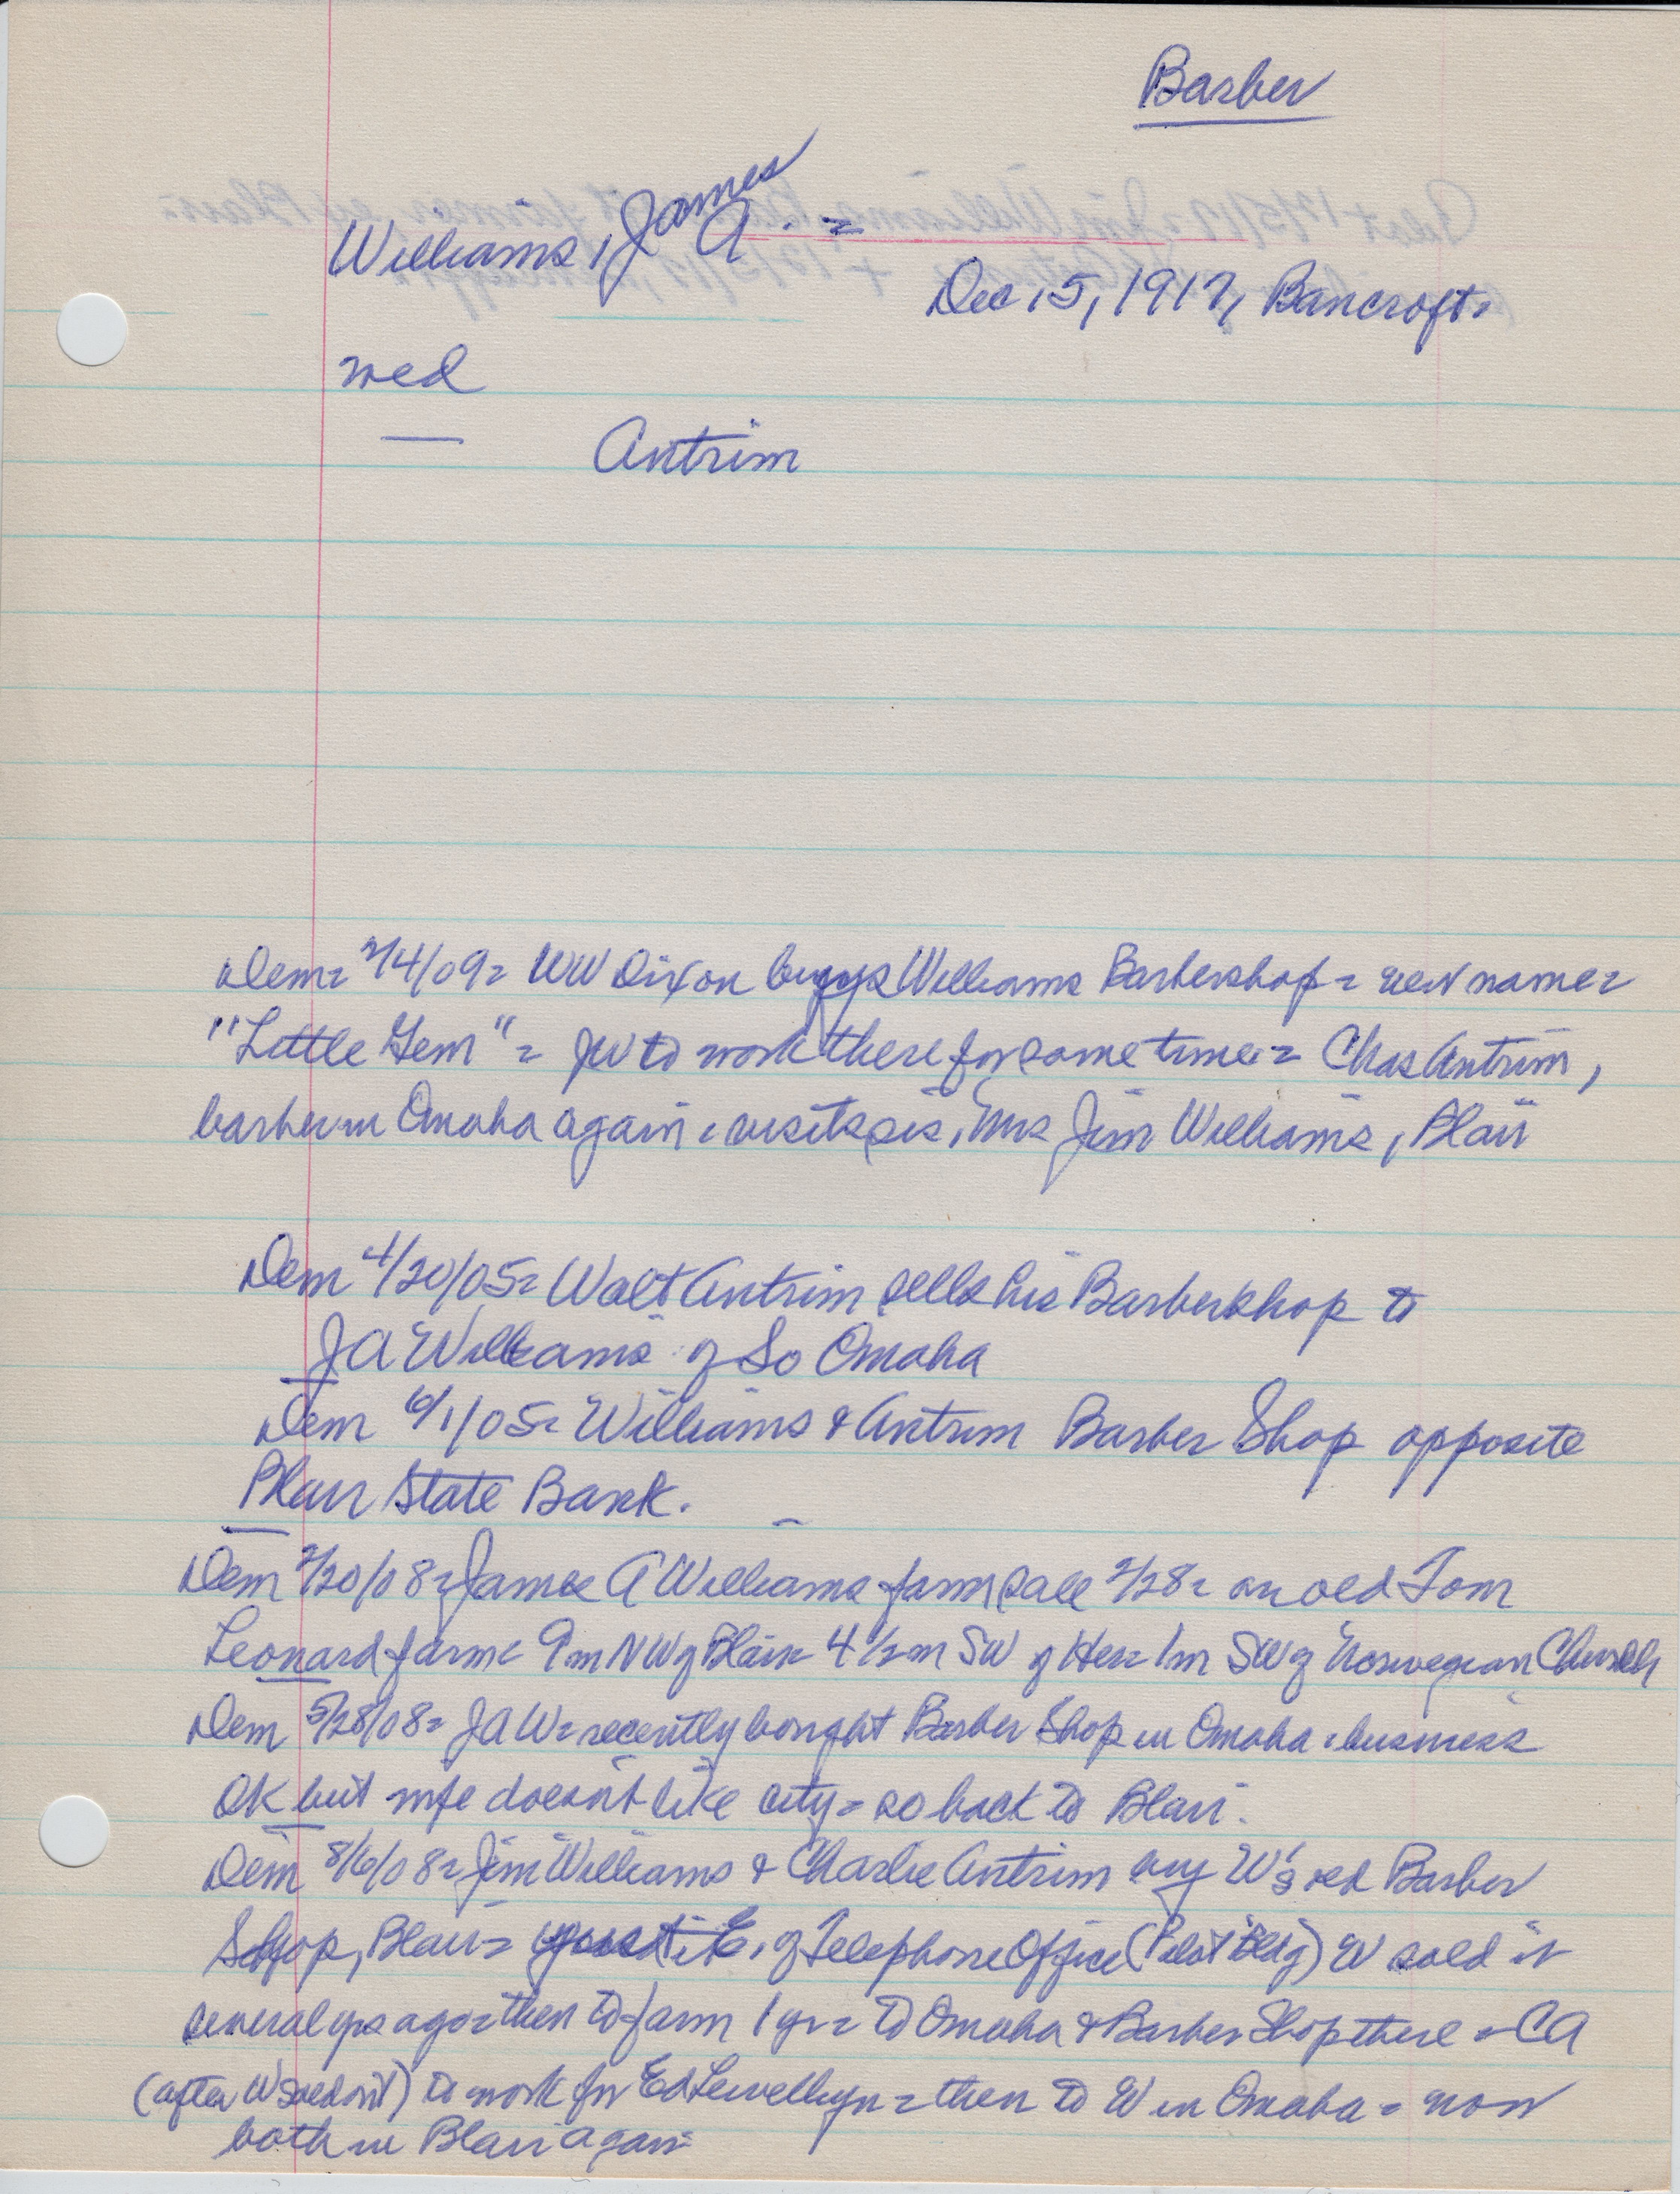 Barber
Williams, James A. =
Dec 15, 1917, Bancroft.
wed
— Antrim
Dem = 2/4/09 = WW Dixon buys Williams Barbershop = new name =
"Little Gem" = JW to work there for some time = Chas Antrim,
barber in Omaha again = visits sis, Mrs Jim Williams, Blair
Dem 4/20/05 = Walt Antrim sells his Barbershop to
JA Williams of So Omaha
Dem 6/1/05 = Williams & Antrim Barber Shop opposite
Blair State Bank.
Dem 2/20/08 = James A Williams farm sale 2/28 = on old Tom
Leonard farm = 9m NW of Blair 4 1/2 m SW of Her = 1m SW of Norwegian Church
Dem 5/28/08 = JAW = recently bought Barber Shop in Omaha = business
OK but wife doesn't like city = so back to Blair.
Dem 8/6/08 = Jim Williams & Charlie Antrim buy W's old Barber
Shop, Blair = E. of Telephone Office (Pilot Bldg) W sold it
several yrs ago = then to farm 1 yr = to Omaha & Barber Shop there = CA
(after W sold out) to work for Ed Lewellyn = then to W in Omaha = now
both in Blair again